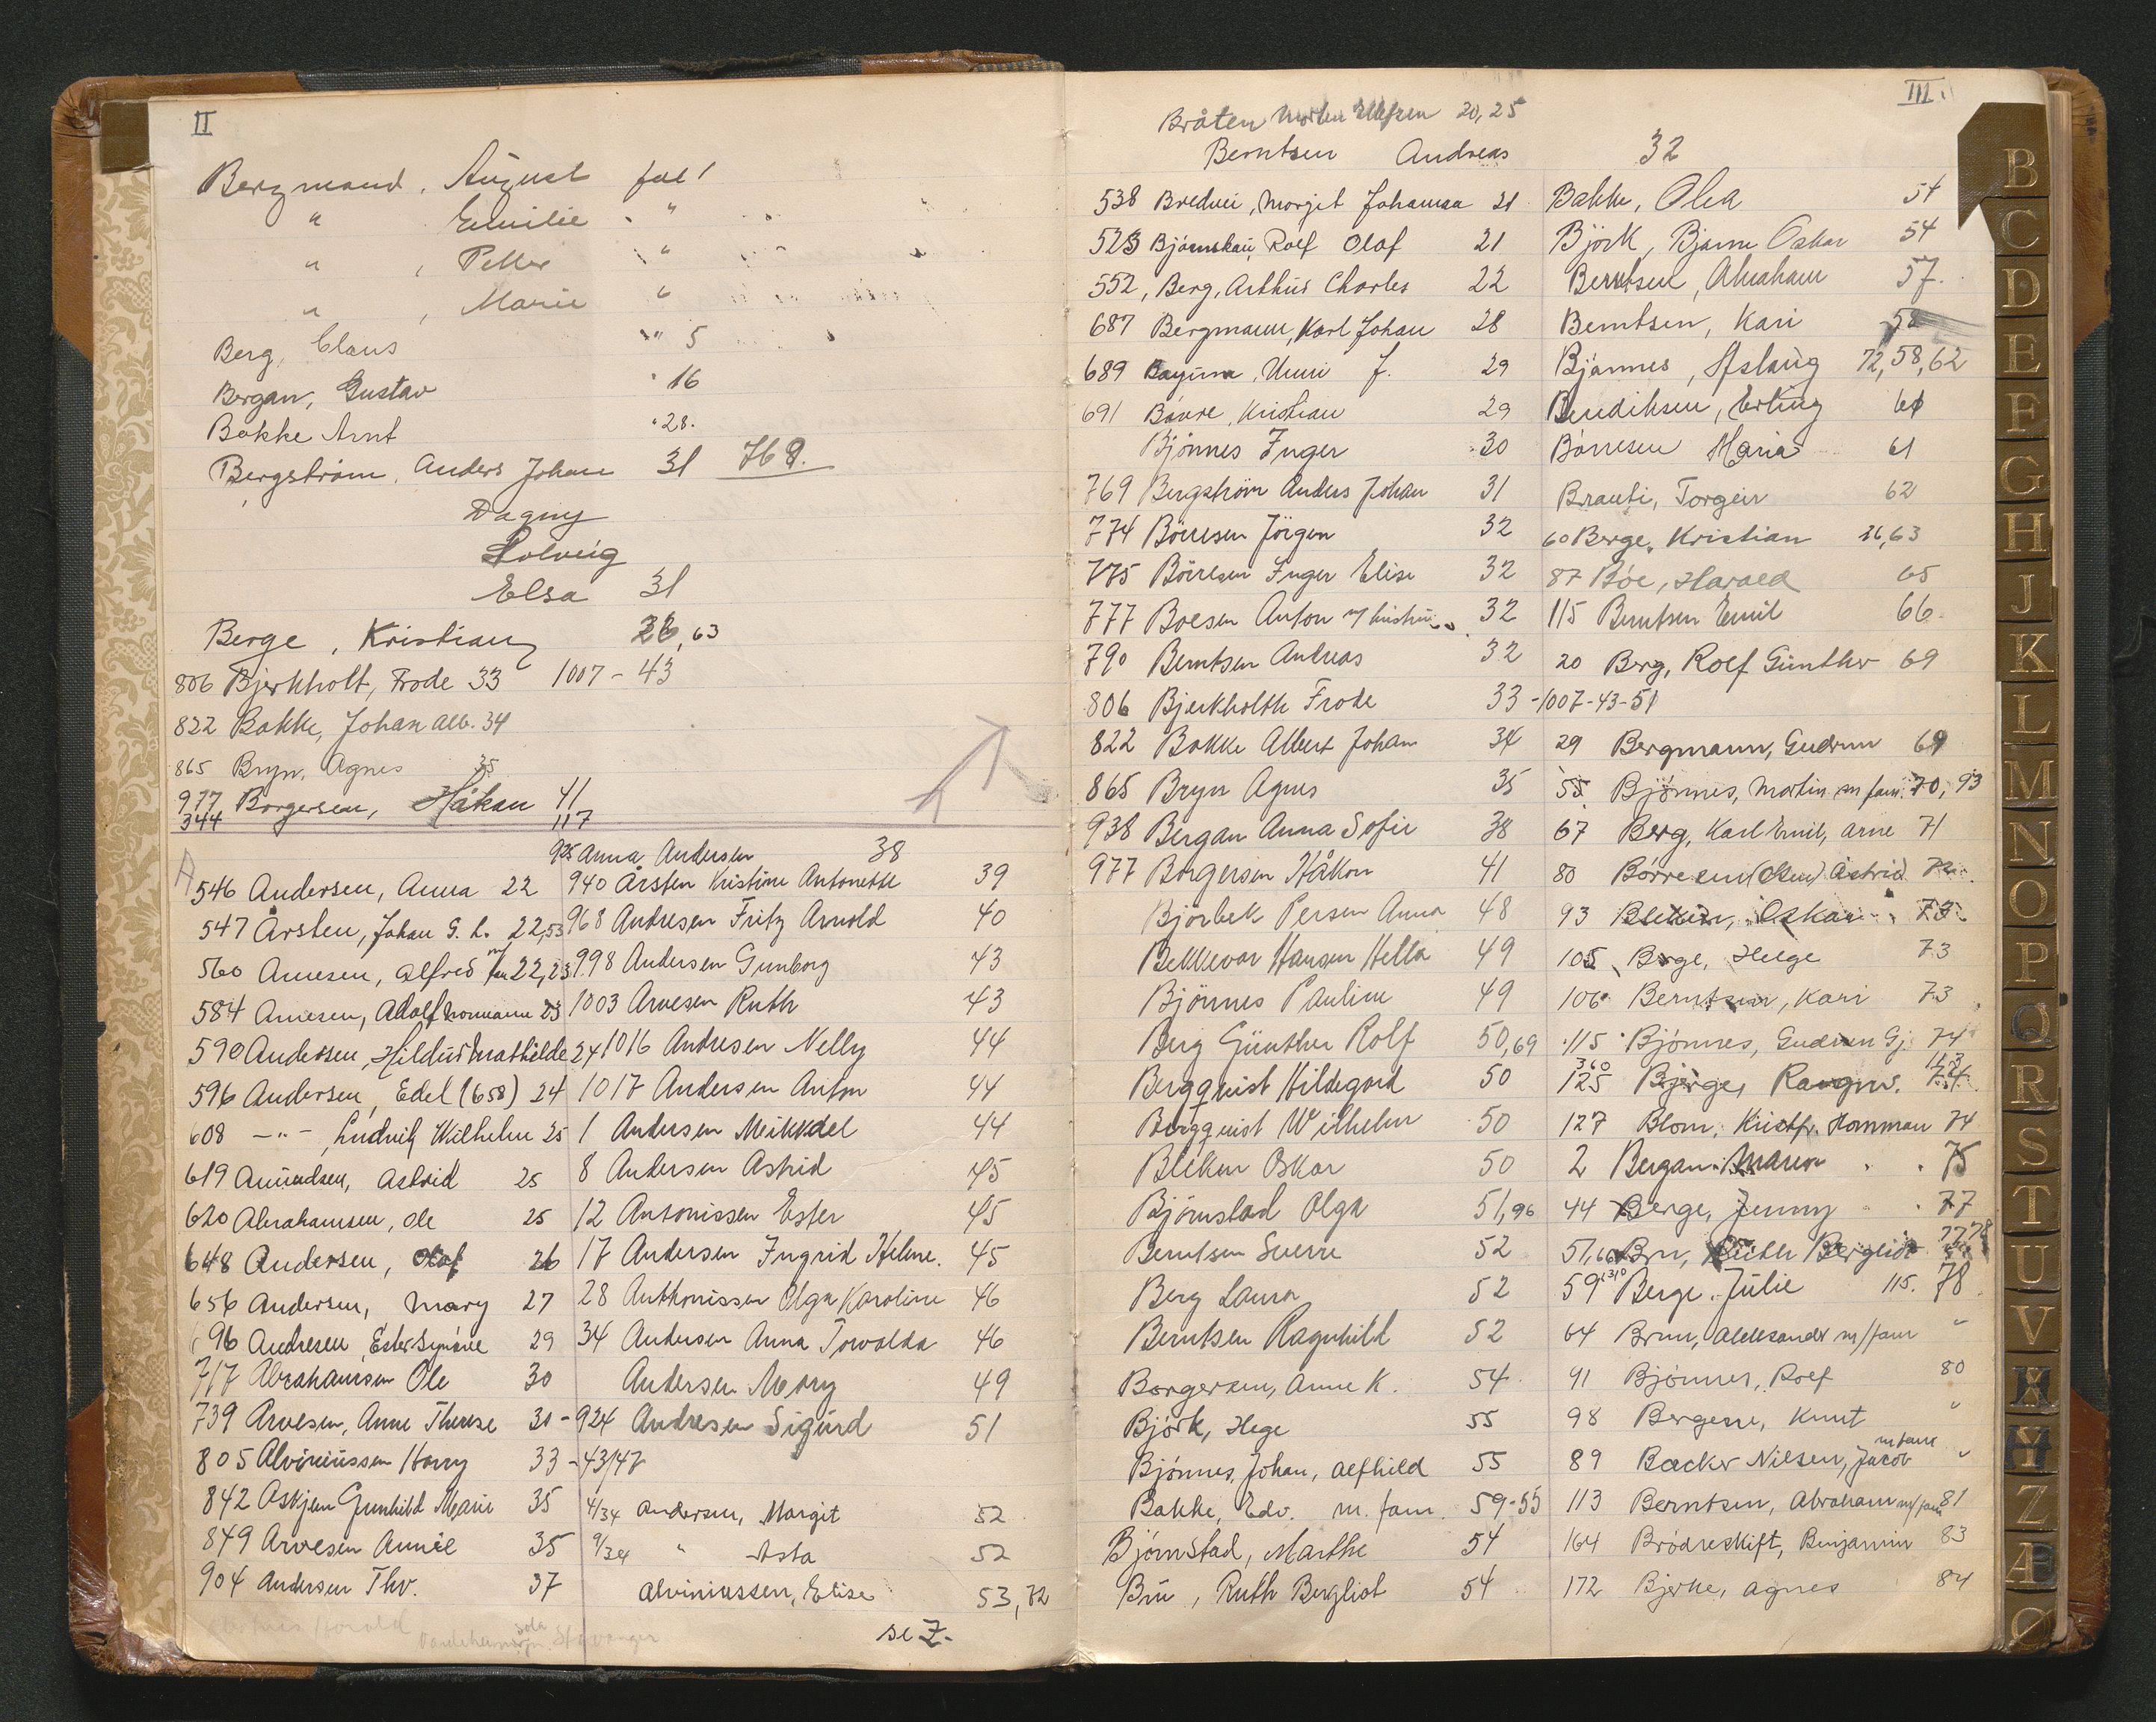 II
Bergmand, August fol 1
" Emilie "
" , Petter "
" , Marie "
Berg, Claus " 5
Bergan, Gustav " 16
Bakke Arnt " 28.
Bergström, Anders Johan 31 768.
Dagny
Solveig
Elsa 31
Berge, Kristian 26, 63
806 Bjerkholt, Frode 33 1007 - 43
822 Bakke, Johan Alb. 34
865 Bryn, Agnes 35
977 Borgersen, Håkan 41
344 117
A
546 Andersen, Anna 22
547 Årsten, Johan G. L. 22,53
560 Arnesen, Alfred 22,23
584 Arnesen, Adolf Normann 23
590 Andersen, Hildur Mathilde 24
596 Andersen, Edel (658) 24
608 -"- , Ludvik Wilhelm 25
619 Amundsen, Astrid 25
620 Abrahamsen, Ole 25
648 Andersen, Olaf 26
656 Andersen, Mary 27
696 Andresen, Ester Synöve 29
717 Abrahamsen Ole 30
739 Arvesen, Anne Therese 30 -
805 Alviniussen Harry 33 - 43/47
842 Askjem Gunhild Marie 35
849 Arvesen Annie 35
904 Andersen Thv. 37
925 Anna Andersen 38
940 Årsten Kristine Antonette 39
968 Andresen Fritz Arnold 40
998 Andersen Gunborg 43
1003 Arvesen Ruth 43
1016 Andresen Nelly 44
1017 Andersen Anton 44
1 Andersen Meikkdel 44
8 Andersen Astrid 45
12 Antonissen Ester 45
17 Andersen Ingrid Helene. 45
28 Anthonissen Olga Karoline 46
34 Andersen Anna Torvalda 46
Andersen Mary 49
924 Andresen Sigurd 51
4/34 Andersen, Margit 52
9/34 " Asta 52
Alviniussen, Elise 53,72
se Z.
III.
Bråten Morten Ellefsen 20,25
Berntsen Andreas 32
538 Bredvei, Margit Johanna 21
523 Bjørnskau, Rolf Olaf 21
552, Berg, Arthur Charles 22
687 Bergmann, Karl Johan 28
689 Unni J. 29
691 Bavre, Kristian 29
Bjönnes Inger 30
769 Bergström Anders Johan 31
774 Börresen Jörgen 32
775 Börresen Inger Elise 32
777 Boesen Anton 32
790 Berntsen Andreas 32
806 Bjerkholth Frode 33 - 1007-43-51
822 Bakke Albert Johan 34
865 Bryn Agnes 35
938 Bergan Anna Sofie 38
977 Borgersen Håkon 41
Bjørbek Persen Anna 48
Bekkevar Hansen Hella 49
Bjönnes Pauline 49
Berg Günther Rolf 50,69
Bergquist Hildegard 50
Bergquist Wilhelm 50
Bleken Oskar 50
Bjørnstad Olga 51,96
Berntsen Sverre 52
Berg Laura 52
Berntsen Ragnhild 52
Borgersen, Anne K. 54
Bjørk, Hege 55
Bjónnes, Johan, Alfhild 55
Bakke, Edv. m. fam. 59-55
BjørnStad, Marthe 54
Bru, Ruth Bergliot 54
Bakke, Olea 54
Björk, Bjarne Oskar 54
Berntsen, Abraham 57.
Berntsen, Kari 58
Bjønnes, Aslaug 72,58,62
Bendiksen, Erling 61
Børresen Maria 61
Brauti, Torgeir 62
60 Berge, Kristian 26,63
87 Bóe, Harald 65
115 Berntsen Emil 66
20 Berg, Rolf Günther 69
29 Bergmann, Gudrun 69
55 Bjønnes, Martin m fam. 70, 93
67 Berg, Karl Emil, Arne 71
80 Børresen (Olsen) Astrid 72
93 Bleken, Oskar 73
105 Berge, Helge 73
106 Berntsen, Kari 73
115 Bjónnes, Gudrun Gj. 74
360 113
125 Bjerge, Ragnv. 74
127 Blom, Kristfr. Homman 74
2 Bergan Maren 75
44 Berge, Jenny 77
51,66 Bru, Ruth Bergliot 77,78
59 Berge, Julie 115. 78
64 Brun, Aleksander m/fam "
91 Bjónnes, Rolf 80
98 Bergene, Knut "
89 Backer Nilsen, Jacob m fam "
113 Berntsen, Abraham m/fam 81
164 Brødreskift, Benjamin 83
172 Bjerke, Agnes 84
B
C
D
E
F
G
H
J
K
L
M
N
O
P
Q
R
S
T
U
V
X
Y
Z
Æ
Ø